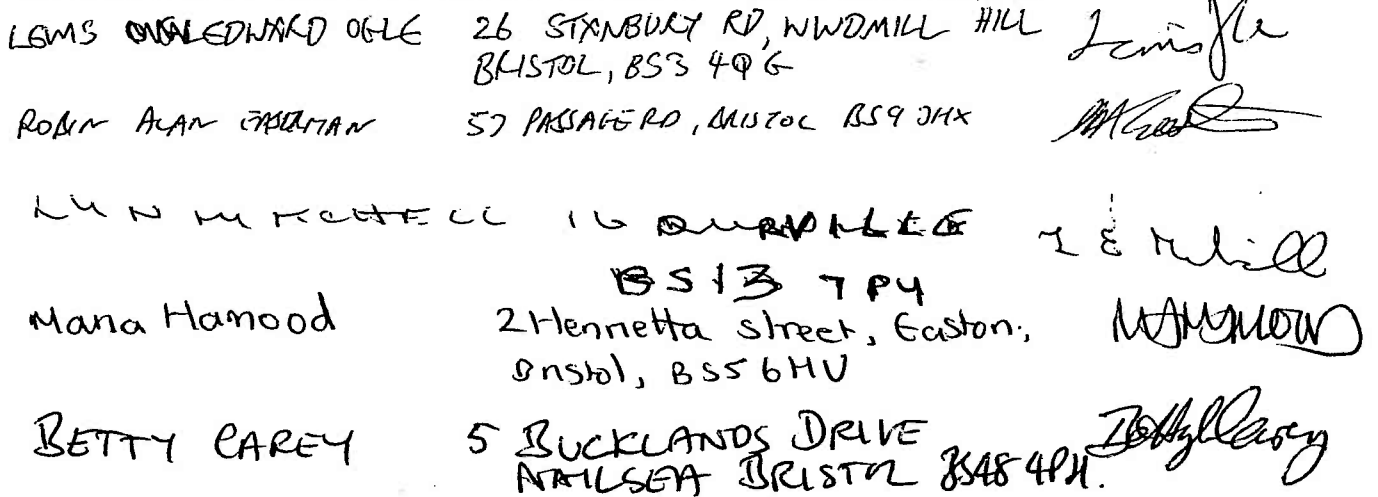 LEWIS EDWARD OGLE 26 STANBURY RD, WINDMILL HILL
BRISTOL, BS3 4QG
ROBIN ALAN EASTERMAN 57 PASSAGE RD, BRISTOL BS9 3HX
LYN MITCHELL 16
BS13 7PY
Mana Hamood 2 Henrietta street, Easton,
Bristol, BS5 6HU
BETTY CAREY 5 BUCKLANDS DRIVE
NAILSEA BRISTOL BS48 4PH.